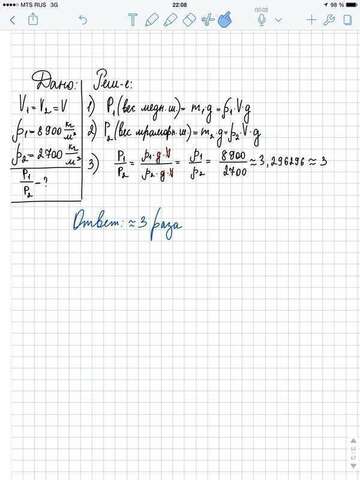 MTS RUS 3G 22:08 98 %
00:00
Дано:
V₁=V₂=V
ρ₁=8900 кг/м³
ρ₂=2700 кг/м³
P₁/P₂ - ?
Реш-е:
1) P₁(вес медн.ш.)= m₁g=ρ₁V·g
2) P₂(вес мраморн.ш.)= m₂g=ρ₂V·g
3) P₁/P₂ = ρ₁·g·V/ρ₂·g·V = ρ₁/ρ₂ = 8900/2700 ≈ 3,296296 ≈ 3
Ответ: ≈ 3 раза